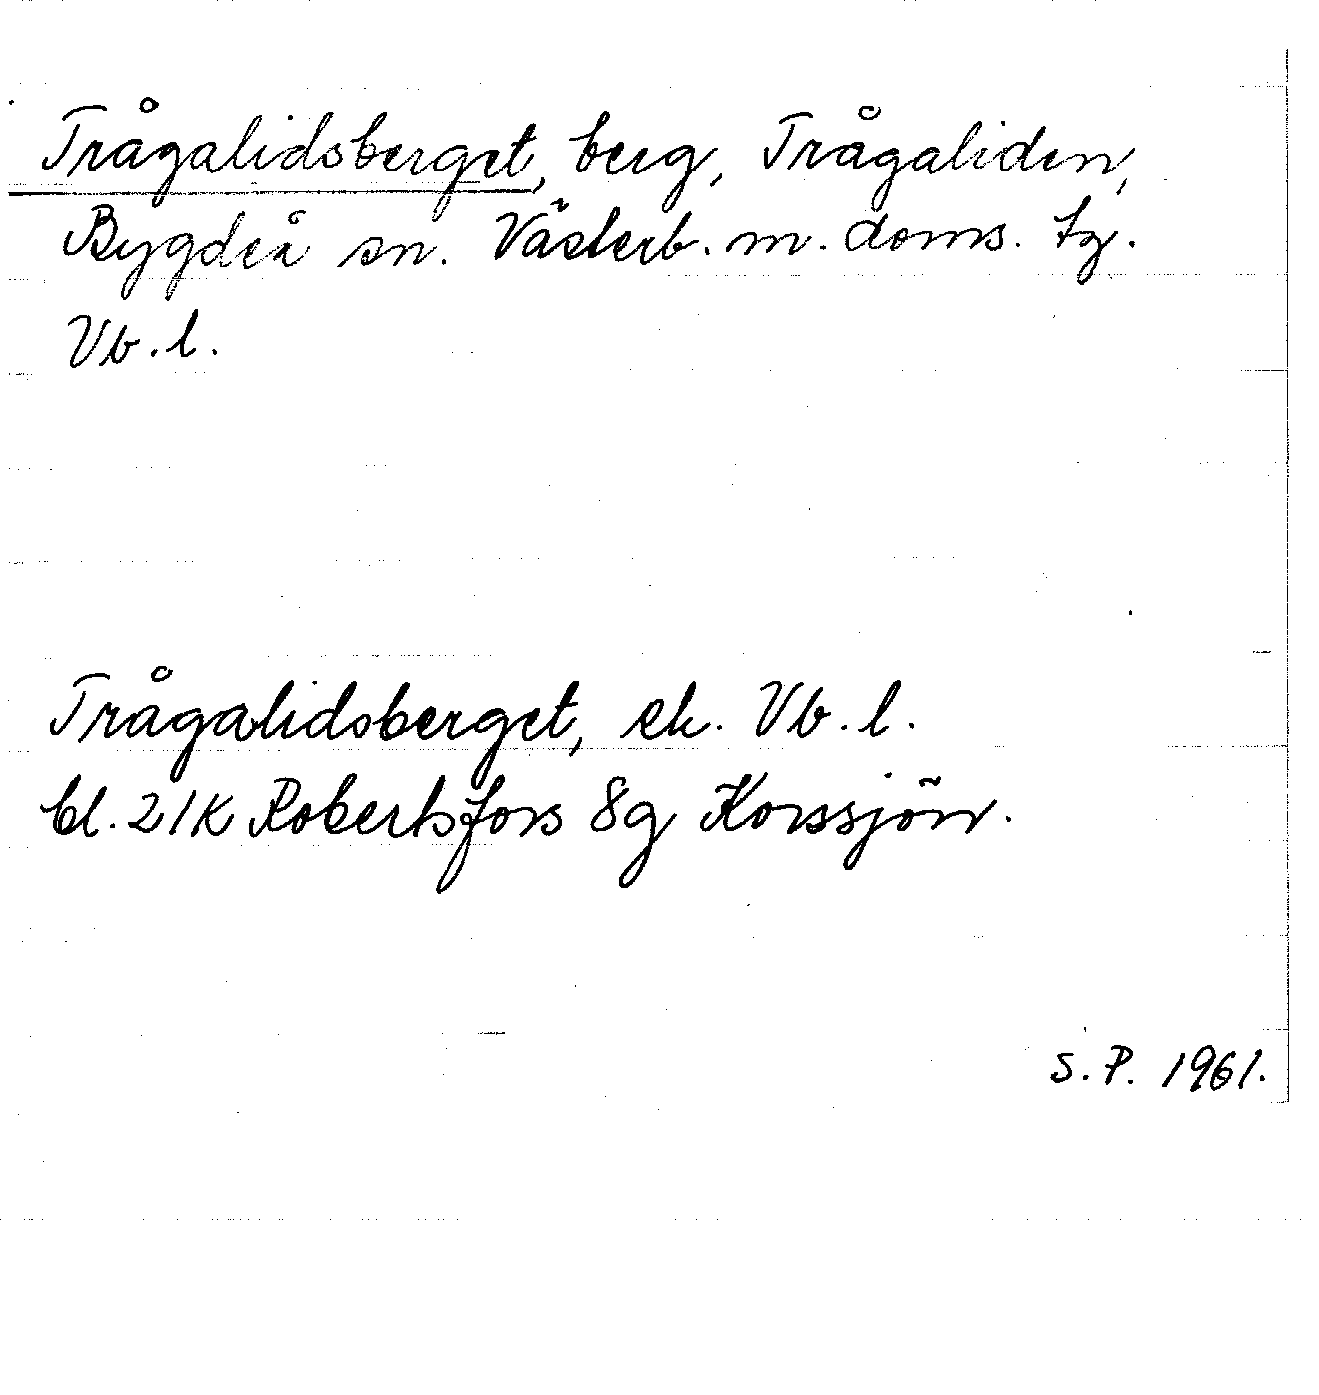 Trågalidsberget, berg, Trågaliden,
Bygdeå sn. Västerb. m. doms. tg.
Vb. l.
Trågalidsberget, ek. Vb. l.
bl. 21K Robertsfors 8g Korssjön.
S. P. 1961.